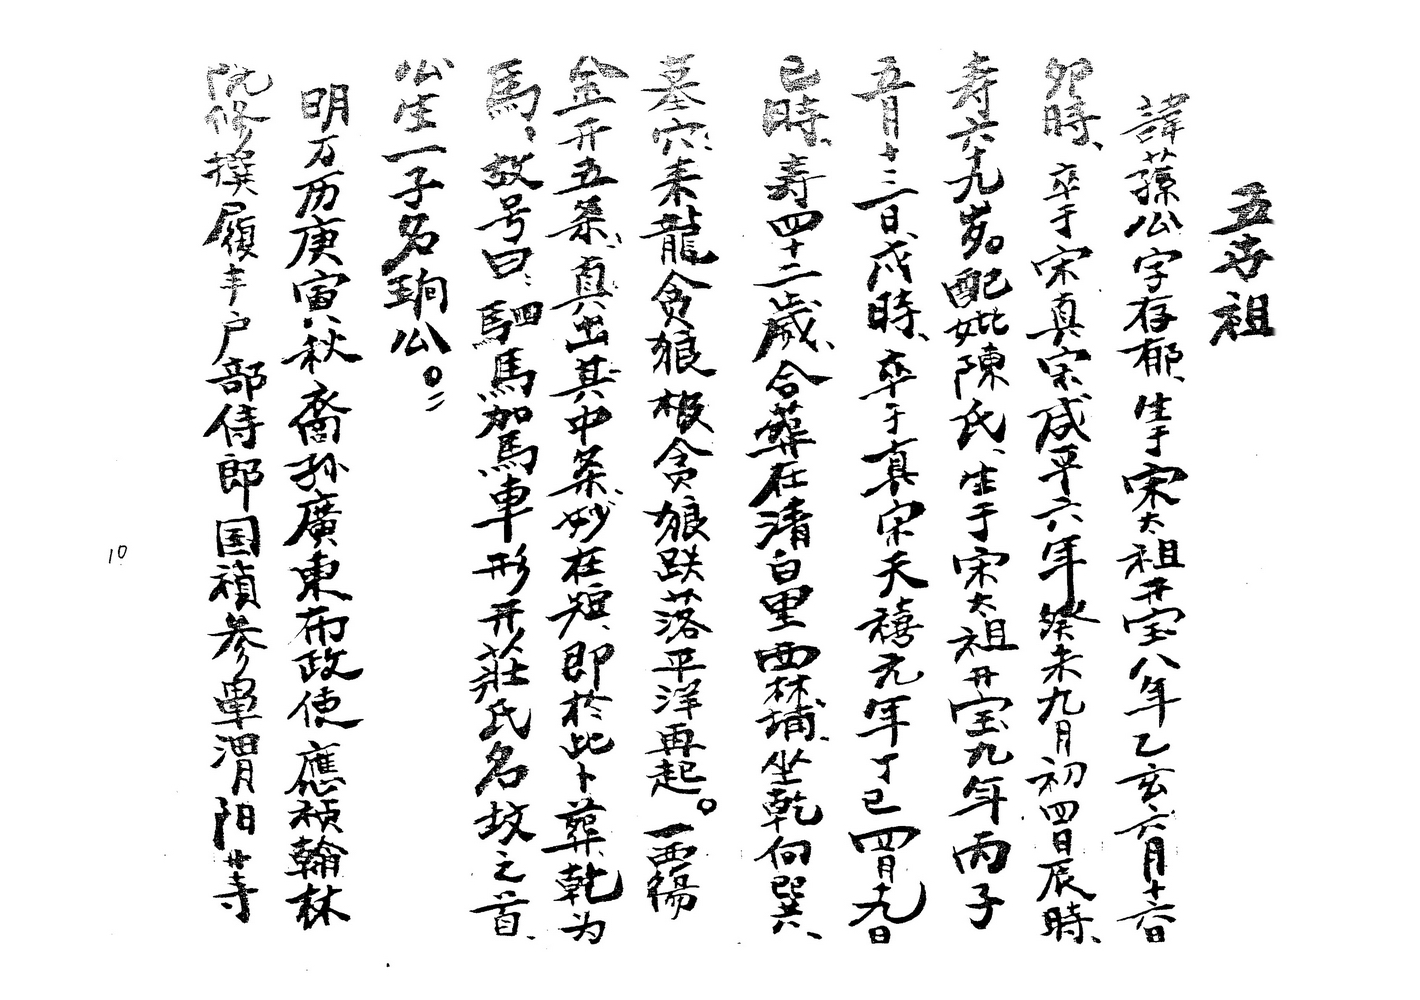 五世祖
諱蓀公字存郁、生于宋太祖开宝八年乙亥六月十六日
卯時、卒于宋真宗咸平六年癸未九月初四日辰時、
寿六十九岁。配妣陳氏、生于宋太祖开宝九年丙子
五月十三日、戌時、卒于真宗天禧元年丁巳四月十九日
巳時、寿四十二歲、合葬在清白里西林埔、坐乾向巽、
墓穴、来龍贪狼极贪狼跌落平洋再起。一西
金开五条、真出其中条、妙在短、即於此卜葬、乾为
馬、故号曰、駟馬加馬車形开莊氏名坟之首、
公生一子名珦公。
明万历庚寅秋裔孙廣東布政使應禎翰林
院修撰履丰户部侍郎国禎参畢渭阳廿寺
10